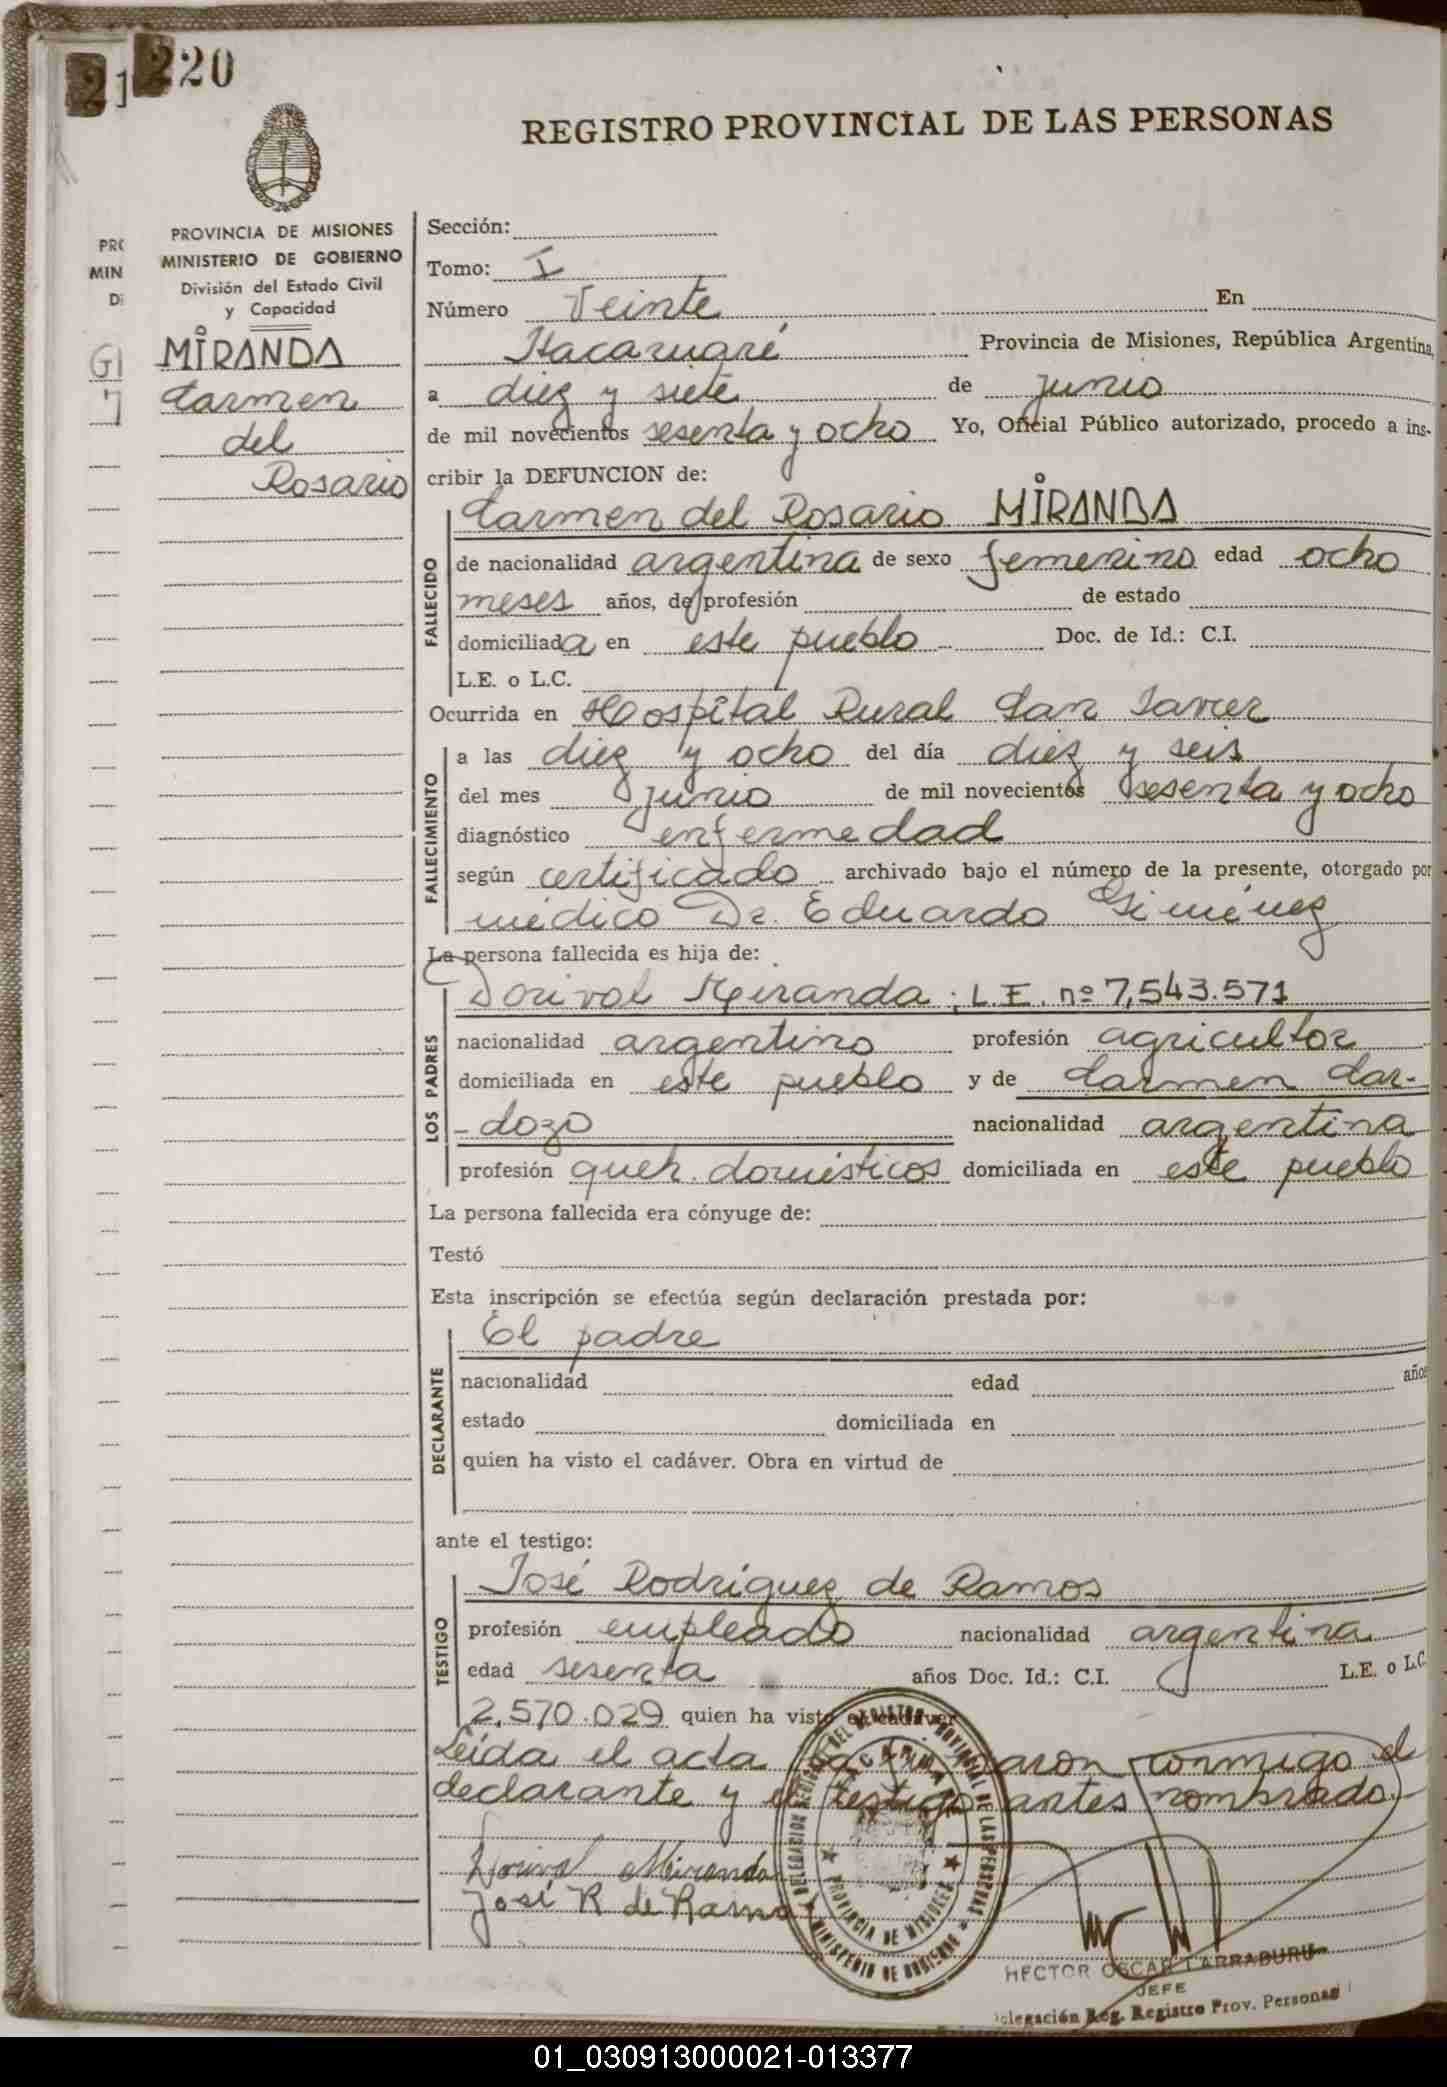 21
220
REGISTRO PROVINCIAL DE LAS PERSONAS
PROVINCIA DE MISIONES
MINISTERIO DE GOBIERNO
División del Estado Civil
y Capacidad
MIRANDA
Carmen
del
Rosario
Sección:
Tomo: I
Número Veinte En
Itacaruaré Provincia de Misiones, República Argentina,
a diez y siete de junio
de mil novecientos sesenta y ocho Yo, Oficial Público autorizado, procedo a ins-
cribir la DEFUNCION de:
Carmen del Rosario MIRANDA
FALLECIDO
de nacionalidad argentina de sexo femenino edad ocho
meses años, de profesión de estado
domiciliada en este pueblo Doc. de Id.: C.I.
L.E. o L.C.
Ocurrida en Hospital Rural San Javier
FALLECIMIENTO
a las diez y ocho del día diez y seis
del mes junio de mil novecientos sesenta y ocho
diagnóstico enfermedad
según certificado archivado bajo el número de la presente, otorgado por
médico Dr. Eduardo Giménez
La persona fallecida es hija de:
LOS PADRES
Dorival Miranda; L.E. nº 7,543.571
nacionalidad argentino profesión agricultor
domiciliada en este pueblo y de Carmen Car-
-dozo nacionalidad argentina
profesión queh. domésticos domiciliada en este pueblo
La persona fallecida era cónyuge de:
Testó
Esta inscripción se efectúa según declaración prestada por:
DECLARANTE
El padre
nacionalidad edad años
estado domiciliada en
quien ha visto el cadáver. Obra en virtud de
ante el testigo:
TESTIGO
José Rodriguez de Ramos
profesión empleado nacionalidad argentina
edad sesenta años Doc. Id.: C.I. L.E. o L.C.
2.570.029 quien ha visto el cadáver
Leida el acta conmigo el
declarante y el testigo antes nombrado.
Dorival Miranda
José R de Ramos
DELEGACION REGISTRO PROVINCIAL DE LAS PERSONAS
PROVINCIA DE MISIONES
MINISTERIO DE GOBIERNO
HECTOR OSCAR LARRABURU
JEFE
Delegación Reg. Registro Prov. Personas
01_030913000021-013377